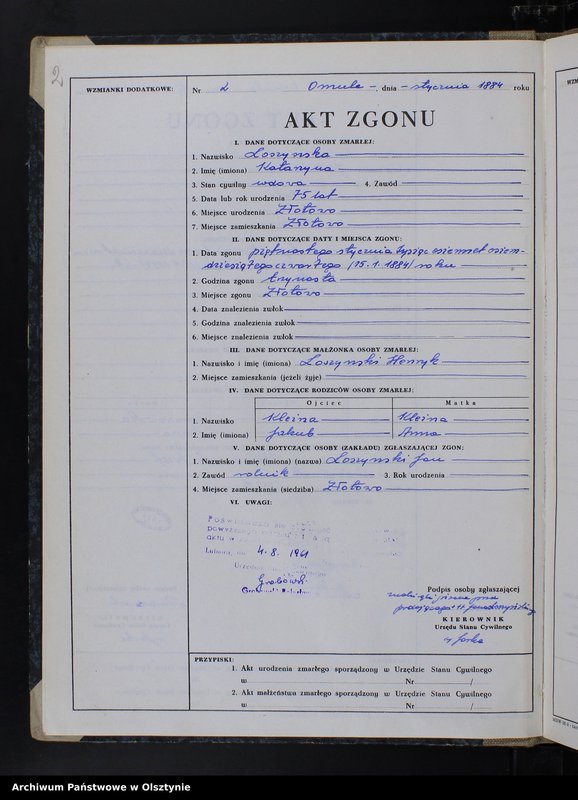 2
WZMIANKI DODATKOWE:
Nr 2 Omule –, dnia – stycznia 1884 roku
AKT ZGONU
I. DANE DOTYCZĄCE OSOBY ZMARŁEJ:
1. Nazwisko Łoszynska
2. Imię (imiona) Katarzyna
3. Stan cywilny wdowa 4. Zawód
5. Data lub rok urodzenia 75 lat
6. Miejsce urodzenia Złotowo
7. Miejsce zamieszkania Złotowo
II. DANE DOTYCZĄCE DATY I MIEJSCA ZGONU:
1. Data zgonu piętnastego stycznia tysiąc osiemset osiem-
dziesiątego czwartego /15.1.1884/ roku
2. Godzina zgonu trzynasta
3. Miejsce zgonu Złotowo
4. Data znalezienia zwłok
5. Godzina znalezienia zwłok
6. Miejsce znalezienia zwłok
III. DANE DOTYCZĄCE MAŁŻONKA OSOBY ZMARŁEJ:
1. Nazwisko i imię (imiona) Łoszynski Henryk
2. Miejsce zamieszkania (jeżeli żyje)
IV. DANE DOTYCZĄCE RODZICÓW OSOBY ZMARŁEJ:
Ojciec Matka
1. Nazwisko Kleina Kleina
2. Imię (imiona) Jakub Anna
V. DANE DOTYCZĄCE OSOBY (ZAKŁADU) ZGŁASZAJĄCEJ ZGON:
1. Nazwisko i imię (imiona) (nazwa) Łoszynski Jan
2. Zawód rolnik 3. Rok urodzenia
4. Miejsce zamieszkania (siedziba) Złotowo
VI. UWAGI:
4.8. 1961
Podpis osoby zgłaszającej
KIEROWNIK
Urzędu Stanu Cywilnego
PRZYPISKI:
1. Akt urodzenia zmarłego sporządzony w Urzędzie Stanu Cywilnego
w Nr /
2. Akt małżeństwa zmarłego sporządzony w Urzędzie Stanu Cywilnego
w Nr /
Archiwum Państwowe w Olsztynie